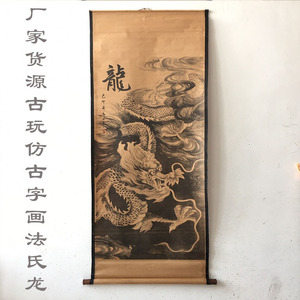 厂家货源古玩仿古字画法氏龙
龍